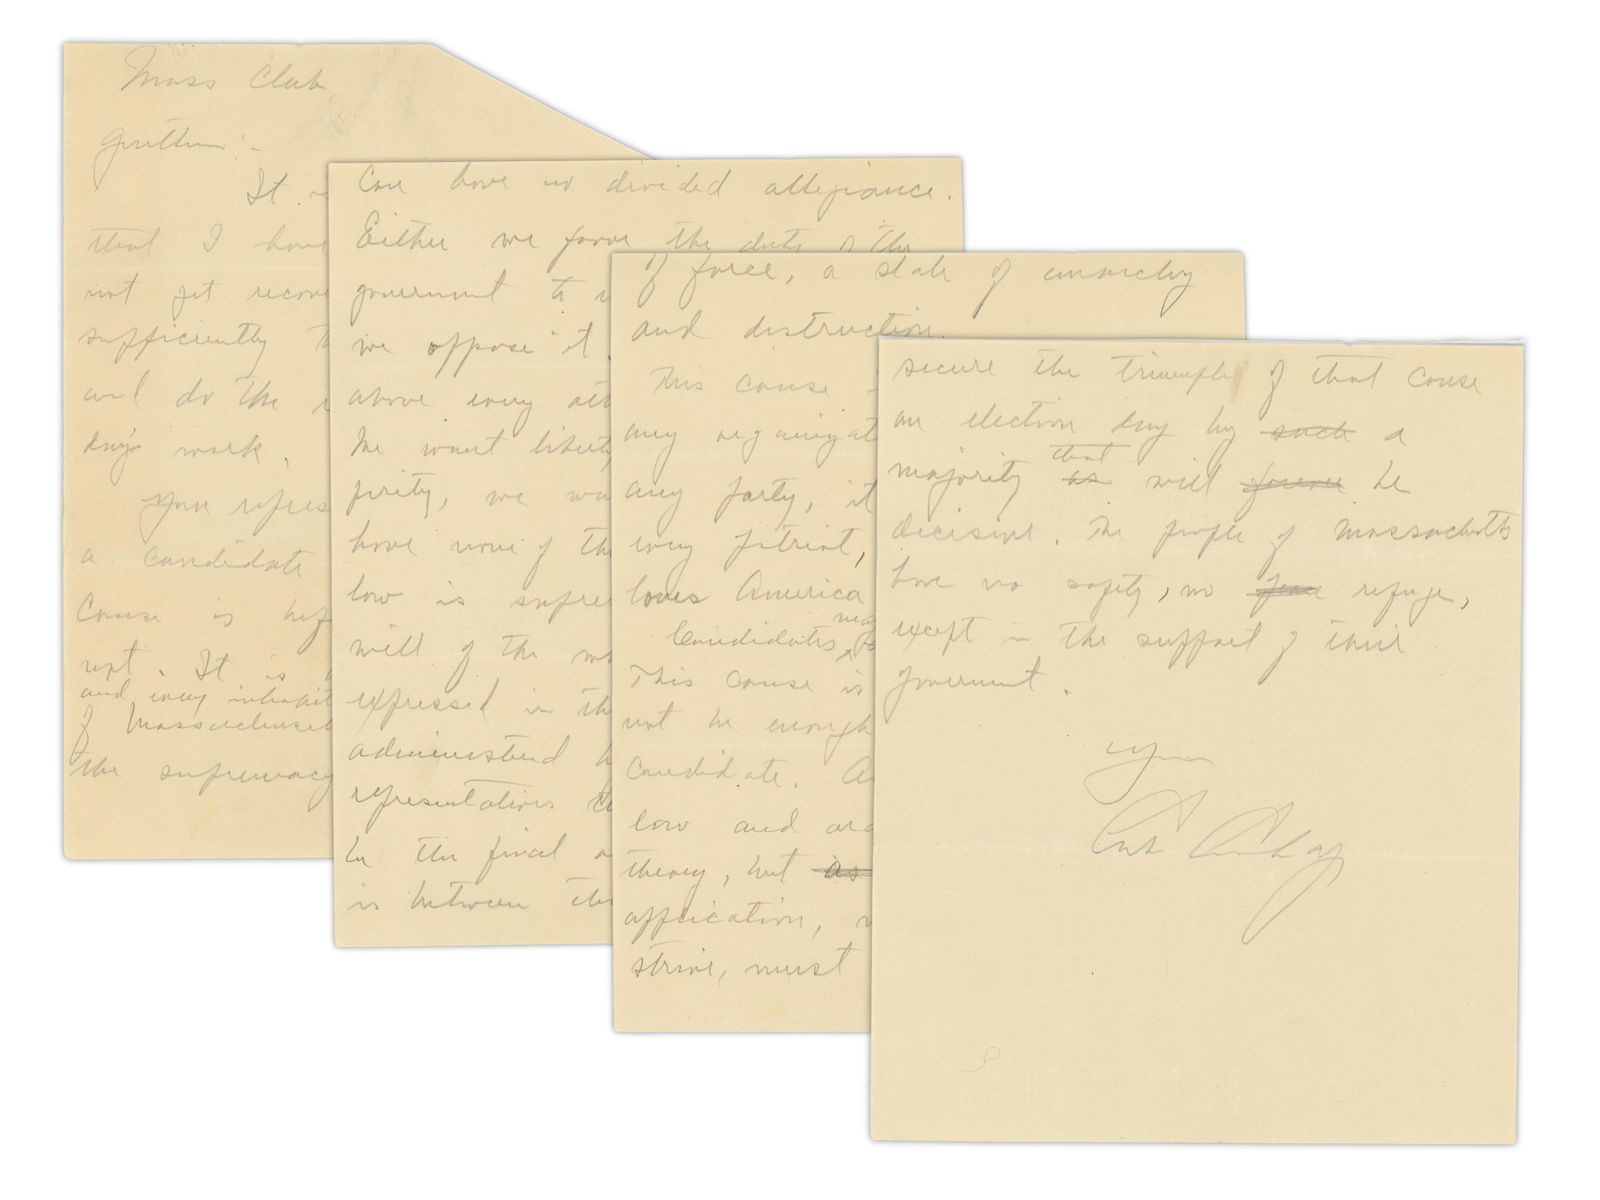 Mass Club
Gentlemen:-
It
that I have
not yet recov
sufficiently
and do the
day's work.
Your repres
a candidate
Cause is
rest. It is
and every inhabit
of Massachuset
the supremacy
can have no divided allegiance.
Either we favor the duty of the
government to
we oppose it.
above every
We want liberty
we
have none of the
law is supre
will of the
expressed in the
administered
representatives
In the final
is between
of force, a state of anarchy
and distruction.
This cause
any organizat
any party, it
every patriot,
loves America
Candidates may
This cause is
not be enough
Candidate. A
law and ord
theory, but as
application,
strive, must
secure the triumph of that cause
on election day by such a
that
majority as will be
decisive. The people of Massachusetts
have no safety, no fear refuge,
except in the support of their
government.
Yours